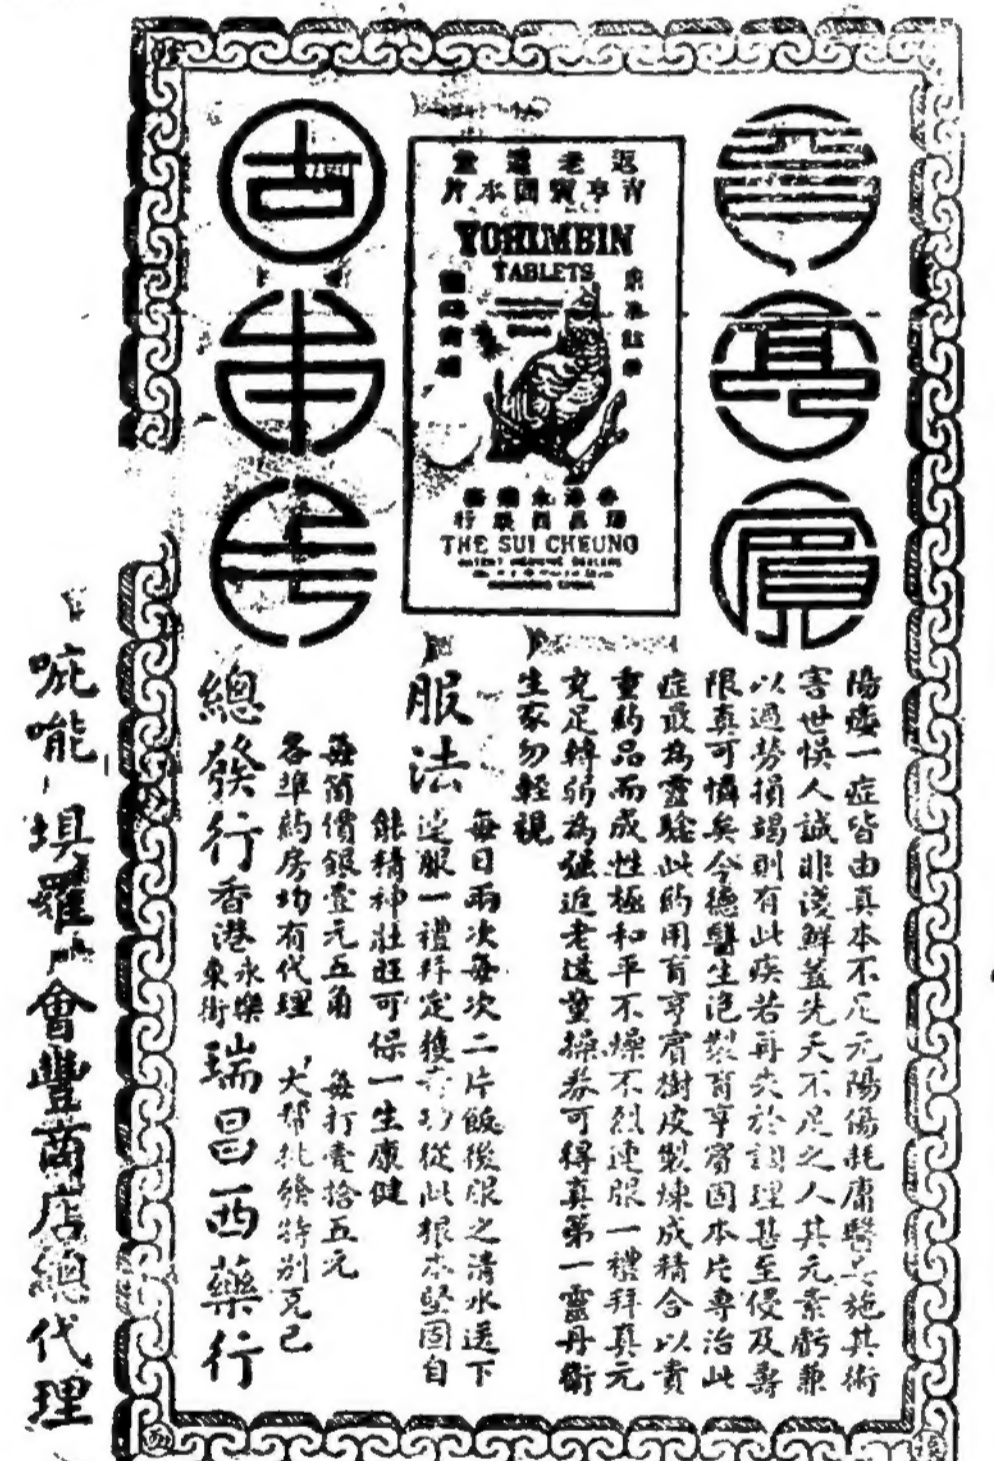 育亨賓
固本片
返老還童
育亨賓固本片
YOHIMBIN
TABLETS
瑞昌西藥行
THE SUI CHEUNG
陽痿一症皆由真本不足元陽傷耗庸醫施其術
害世悞人誠非淺鮮蓋先天不足之人其元素虧兼
以過勞損竭則有此疾若再失於調理甚至侵及壽
限真可憐矣今德醫生泡製育亨賓固本片專治此
症最為靈驗此药用育亨賓樹皮製煉成精合以貴
重药品而成性極和平不燥不烈連服一禮拜真元
充足轉弱為强返老還童操券可得真第一靈丹衛
生家勿輕視
服法
每日兩次每次二片飯後服之清水送下
連服一禮拜定獲奇功從此根本堅固自
能精神壯旺可保一生康健
每筒價銀壹元五角 每打壹拾五元
各埠药房均有代理 大帮批發特别克己
總發行香港永樂東街瑞昌西藥行
吡能 埧羅 會豐商店總代理